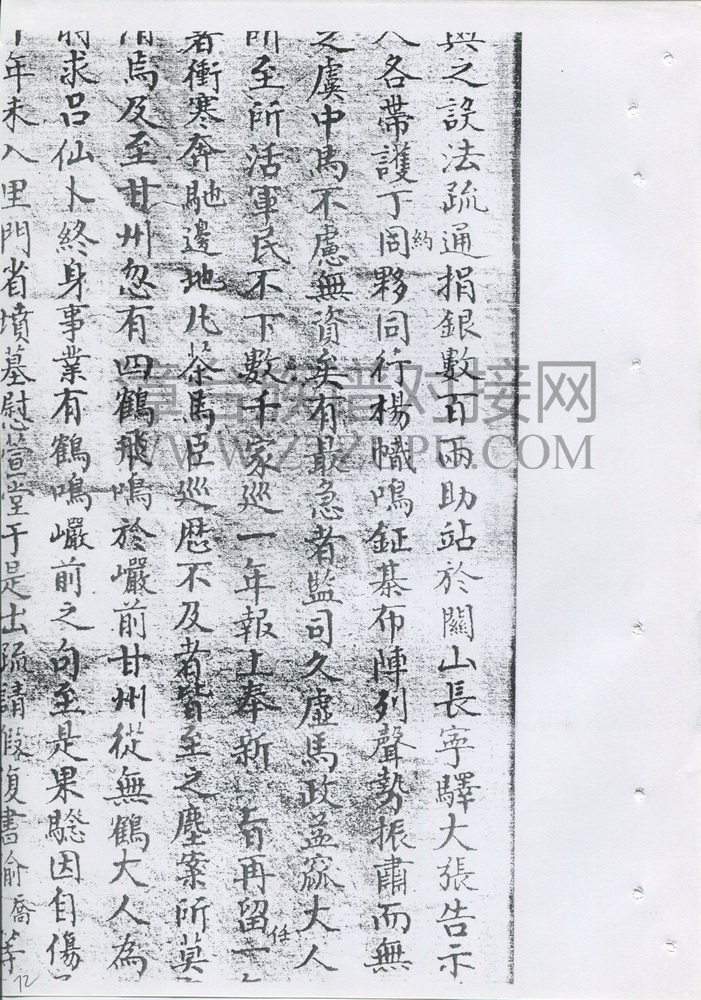 與之設法疏通捐銀數百兩助站於關山長寧驛大張告示
人各帶護丁約同夥同行楊幟鳴鉦綦布陣列聲勢振肅而無
之虞中馬不慮無資矣有最急者監司久虛馬政益窳大人
所至所活軍民不下數千家巡一年報上奉新旨再留任一
者衝寒奔馳邊地凡茶馬臣巡歷不及者皆至之塵案所莫
清焉及至甘州忽有四鶴飛鳴於巖前甘州從無鶴大人為
前求呂仙卜終身事業有鶴鳴巖前之句至是果驗因自傷
十年未入里門省墳墓慰萱堂于是出疏請假復書喻喬等
12
漳台族谱对接网
WWW.ZTZUPU.COM